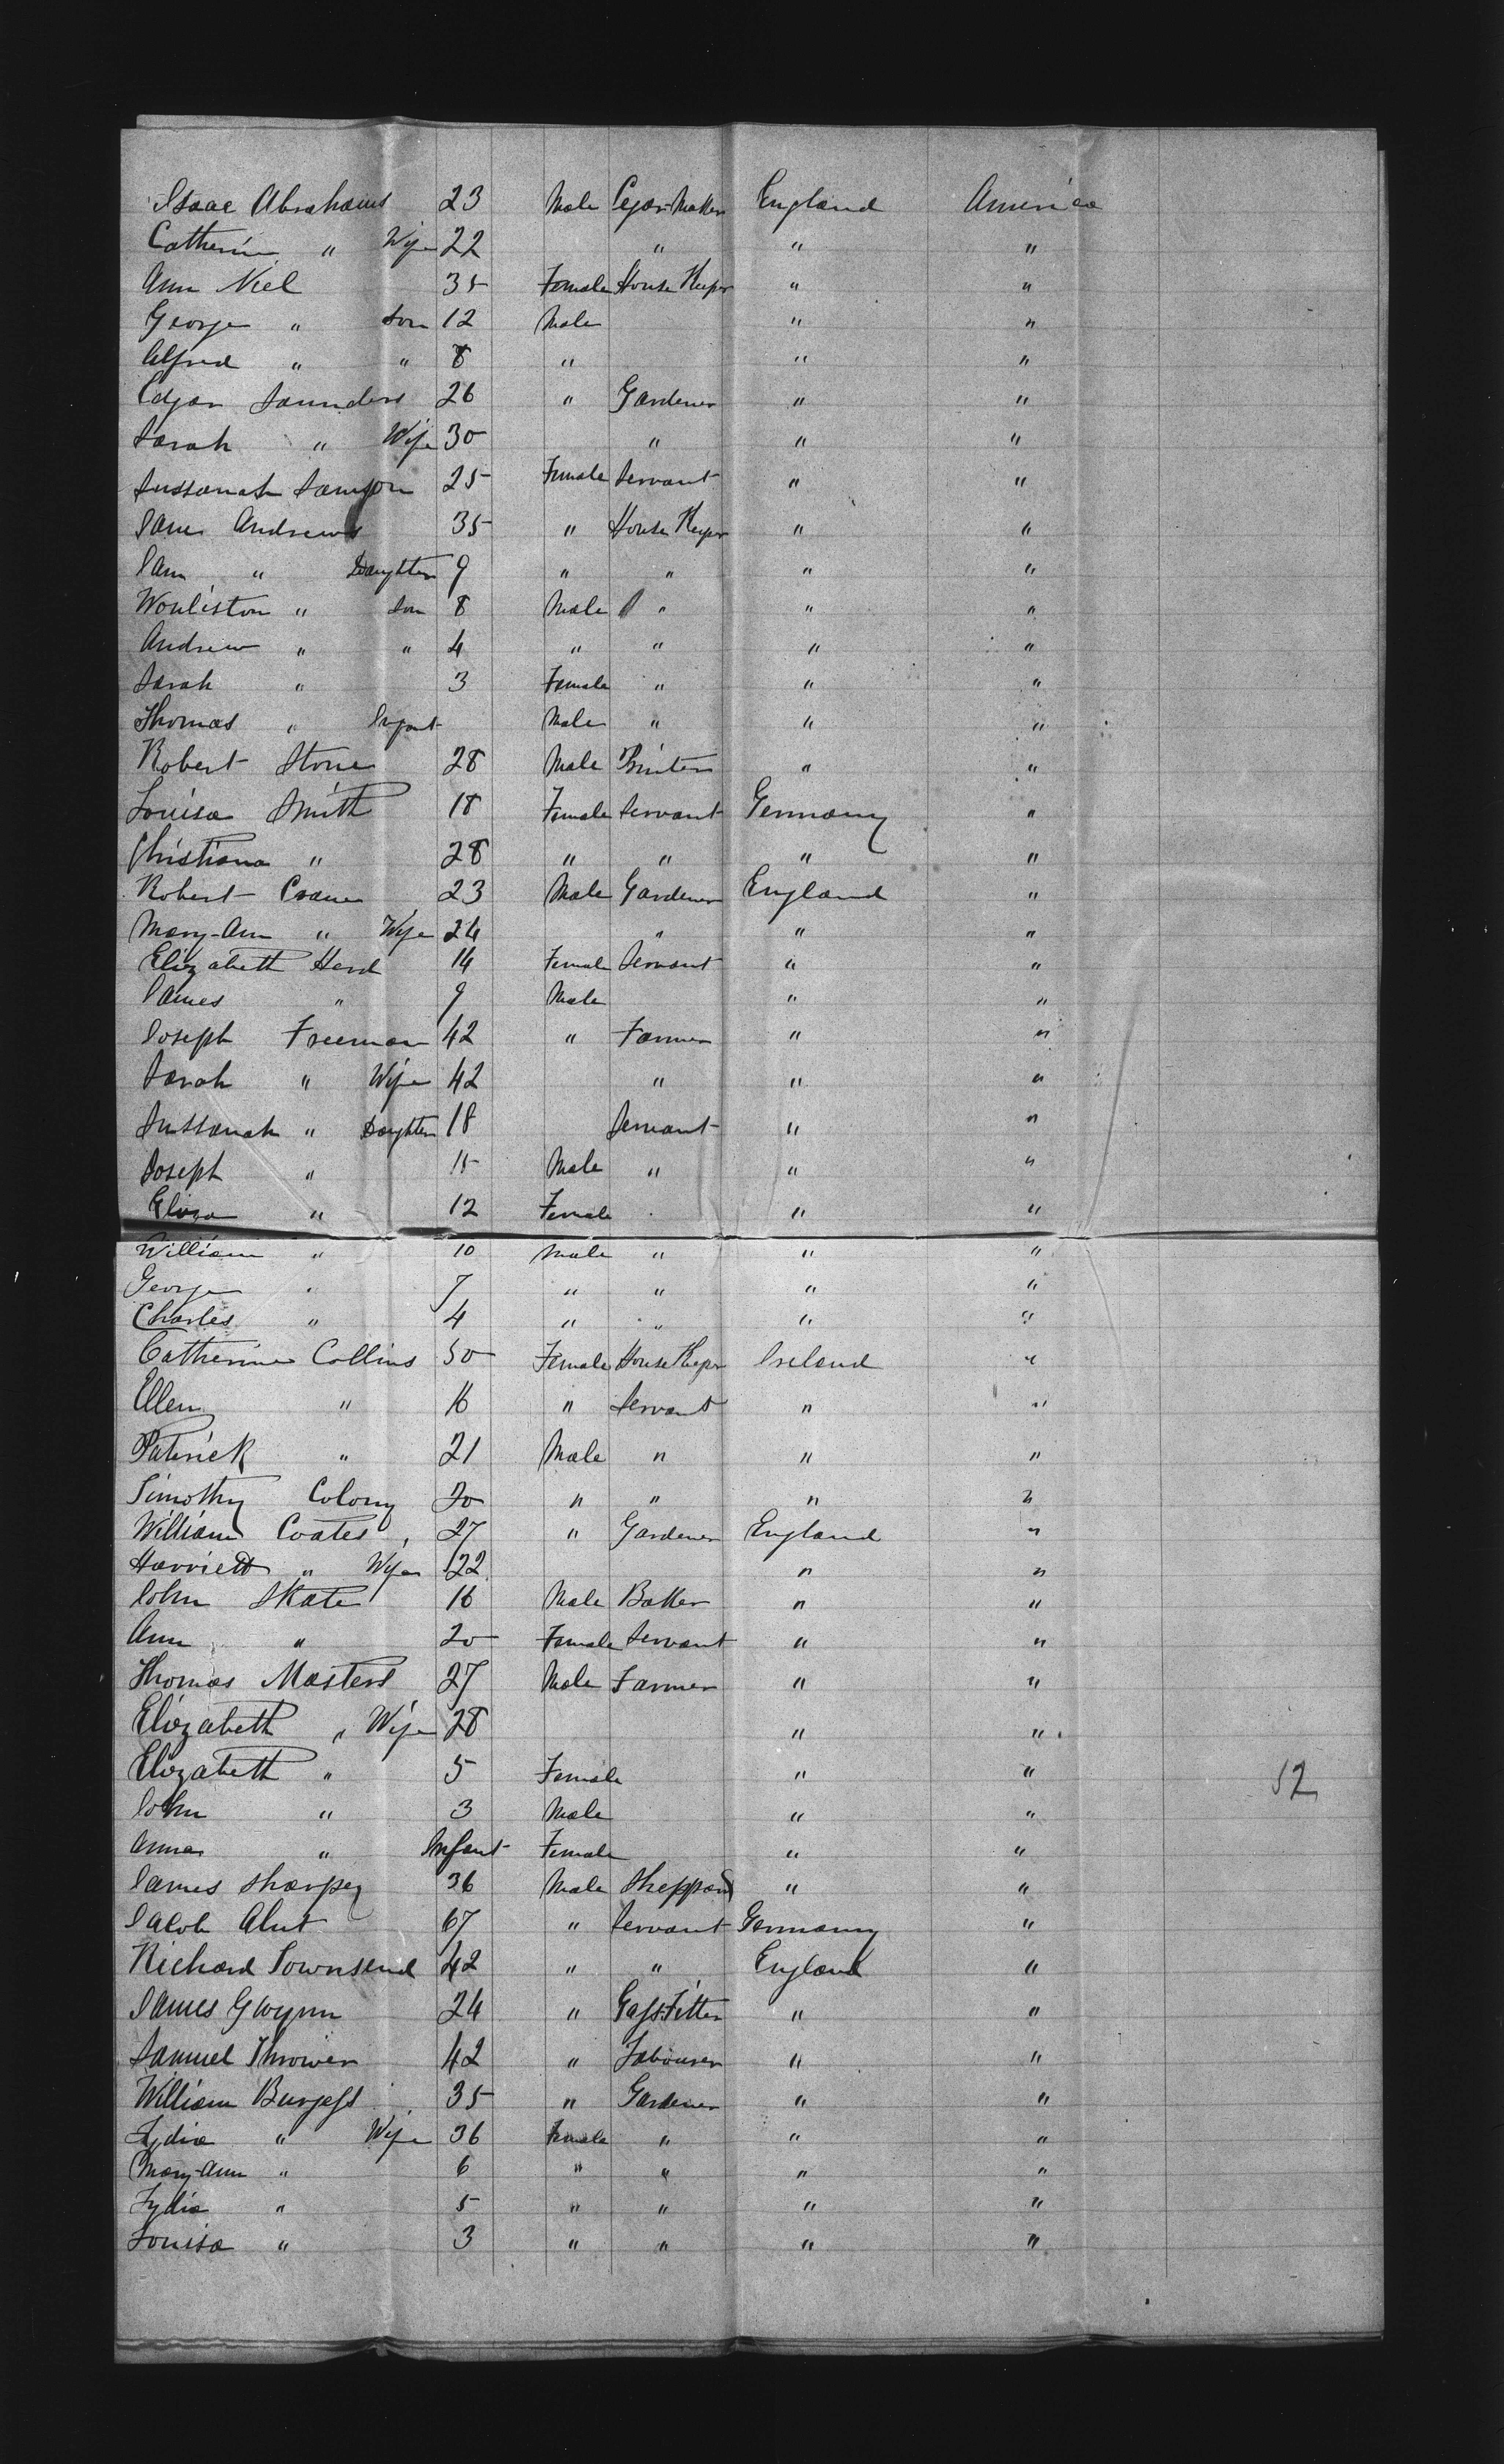 Isaac Abrahams 23 Male Cegar-Maker England America
Catherine " Wife 22 " " "
Ann Niel 35 Female House Keeper " "
George " Son 12 Male " "
Alfred " " 8 " " "
Edgar Saunders 26 " Gardener " "
Sarah " Wife 30 " " "
Sussanah Samson 25 Female Servant " "
Jane Andrews 35 " House Keeper " "
Jane " Daughter 9 " " " "
Wouliston " Son 8 Male " " "
Andrew " " 4 " " " "
Sarah " 3 Female " " "
Thomas " Infant Male " " "
Robert Stone 28 Male Printer " "
Louisa Smith 18 Female Servant Germany "
Christiana " 28 " " " "
Robert Crane 23 Male Gardener England "
Mary-Ann " Wife 24 " " "
Elizabeth Herd 14 Female Servant " "
James " 9 Male " "
Joseph Freeman 42 " Farmer " "
Sarah " Wife 42 " " "
Sussanah " Daughter 18 Servant " "
Joseph " 15 Male " " "
Eliza " 12 Female " "
William " 10 Male " " "
George " 7 " " " "
Charles " 4 " " " "
Catherine Collins 50 Female House Keeper Ireland "
Ellen " 16 " Servant " "
Patrick " 21 Male " " "
Timothy Colony 20 " " " "
William Coates 27 " Gardener England "
Harriett " Wife 22 " "
John Skate 16 Male Baker " "
Ann " 20 Female Servant " "
Thomas Masters 27 Male Farmer " "
Elizabeth " Wife 28 " "
Elizabeth " 5 Female " " 52
John " 3 Male " "
Anna " Infant Female " "
James Sharpey 36 Male Sheppard " "
Jacob Alut 67 " Servant Germany "
Richard Townsend 42 " " England "
James Gwynn 24 " Gass-Fitter " "
Samuel Thrower 42 " Labourer " "
William Burgess 35 " Gardener " "
Lydia " Wife 36 Female " " "
Mary-Ann " 6 " " " "
Lydia " 5 " " " "
Louisa " 3 " " " "